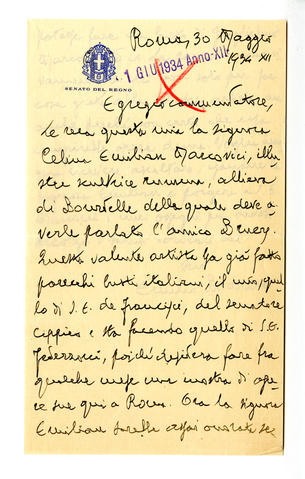 Roma, 30 Maggio
1934 XII
1 GIU 1934 Anno XII
SENATO DEL REGNO
Egregio commendatore,
le reca questa mia la signora
Celina Emilian Macovici, illu-
stre scultrice rumena, allieva
di Bourdelle della quale deve a-
verle parlato l'amico
Questa valente artista ha già fatto
parecchi busti italiani, il mio, quel-
lo di S.E. de Francisci, del senatore
Cippico e sta facendo quello di S.E.
Federzoni, poiché desidera fare fra
qualche mese una mostra di ope-
re sue qui a Roma. Ora la signora
Emilian sarebbe assai onorata se